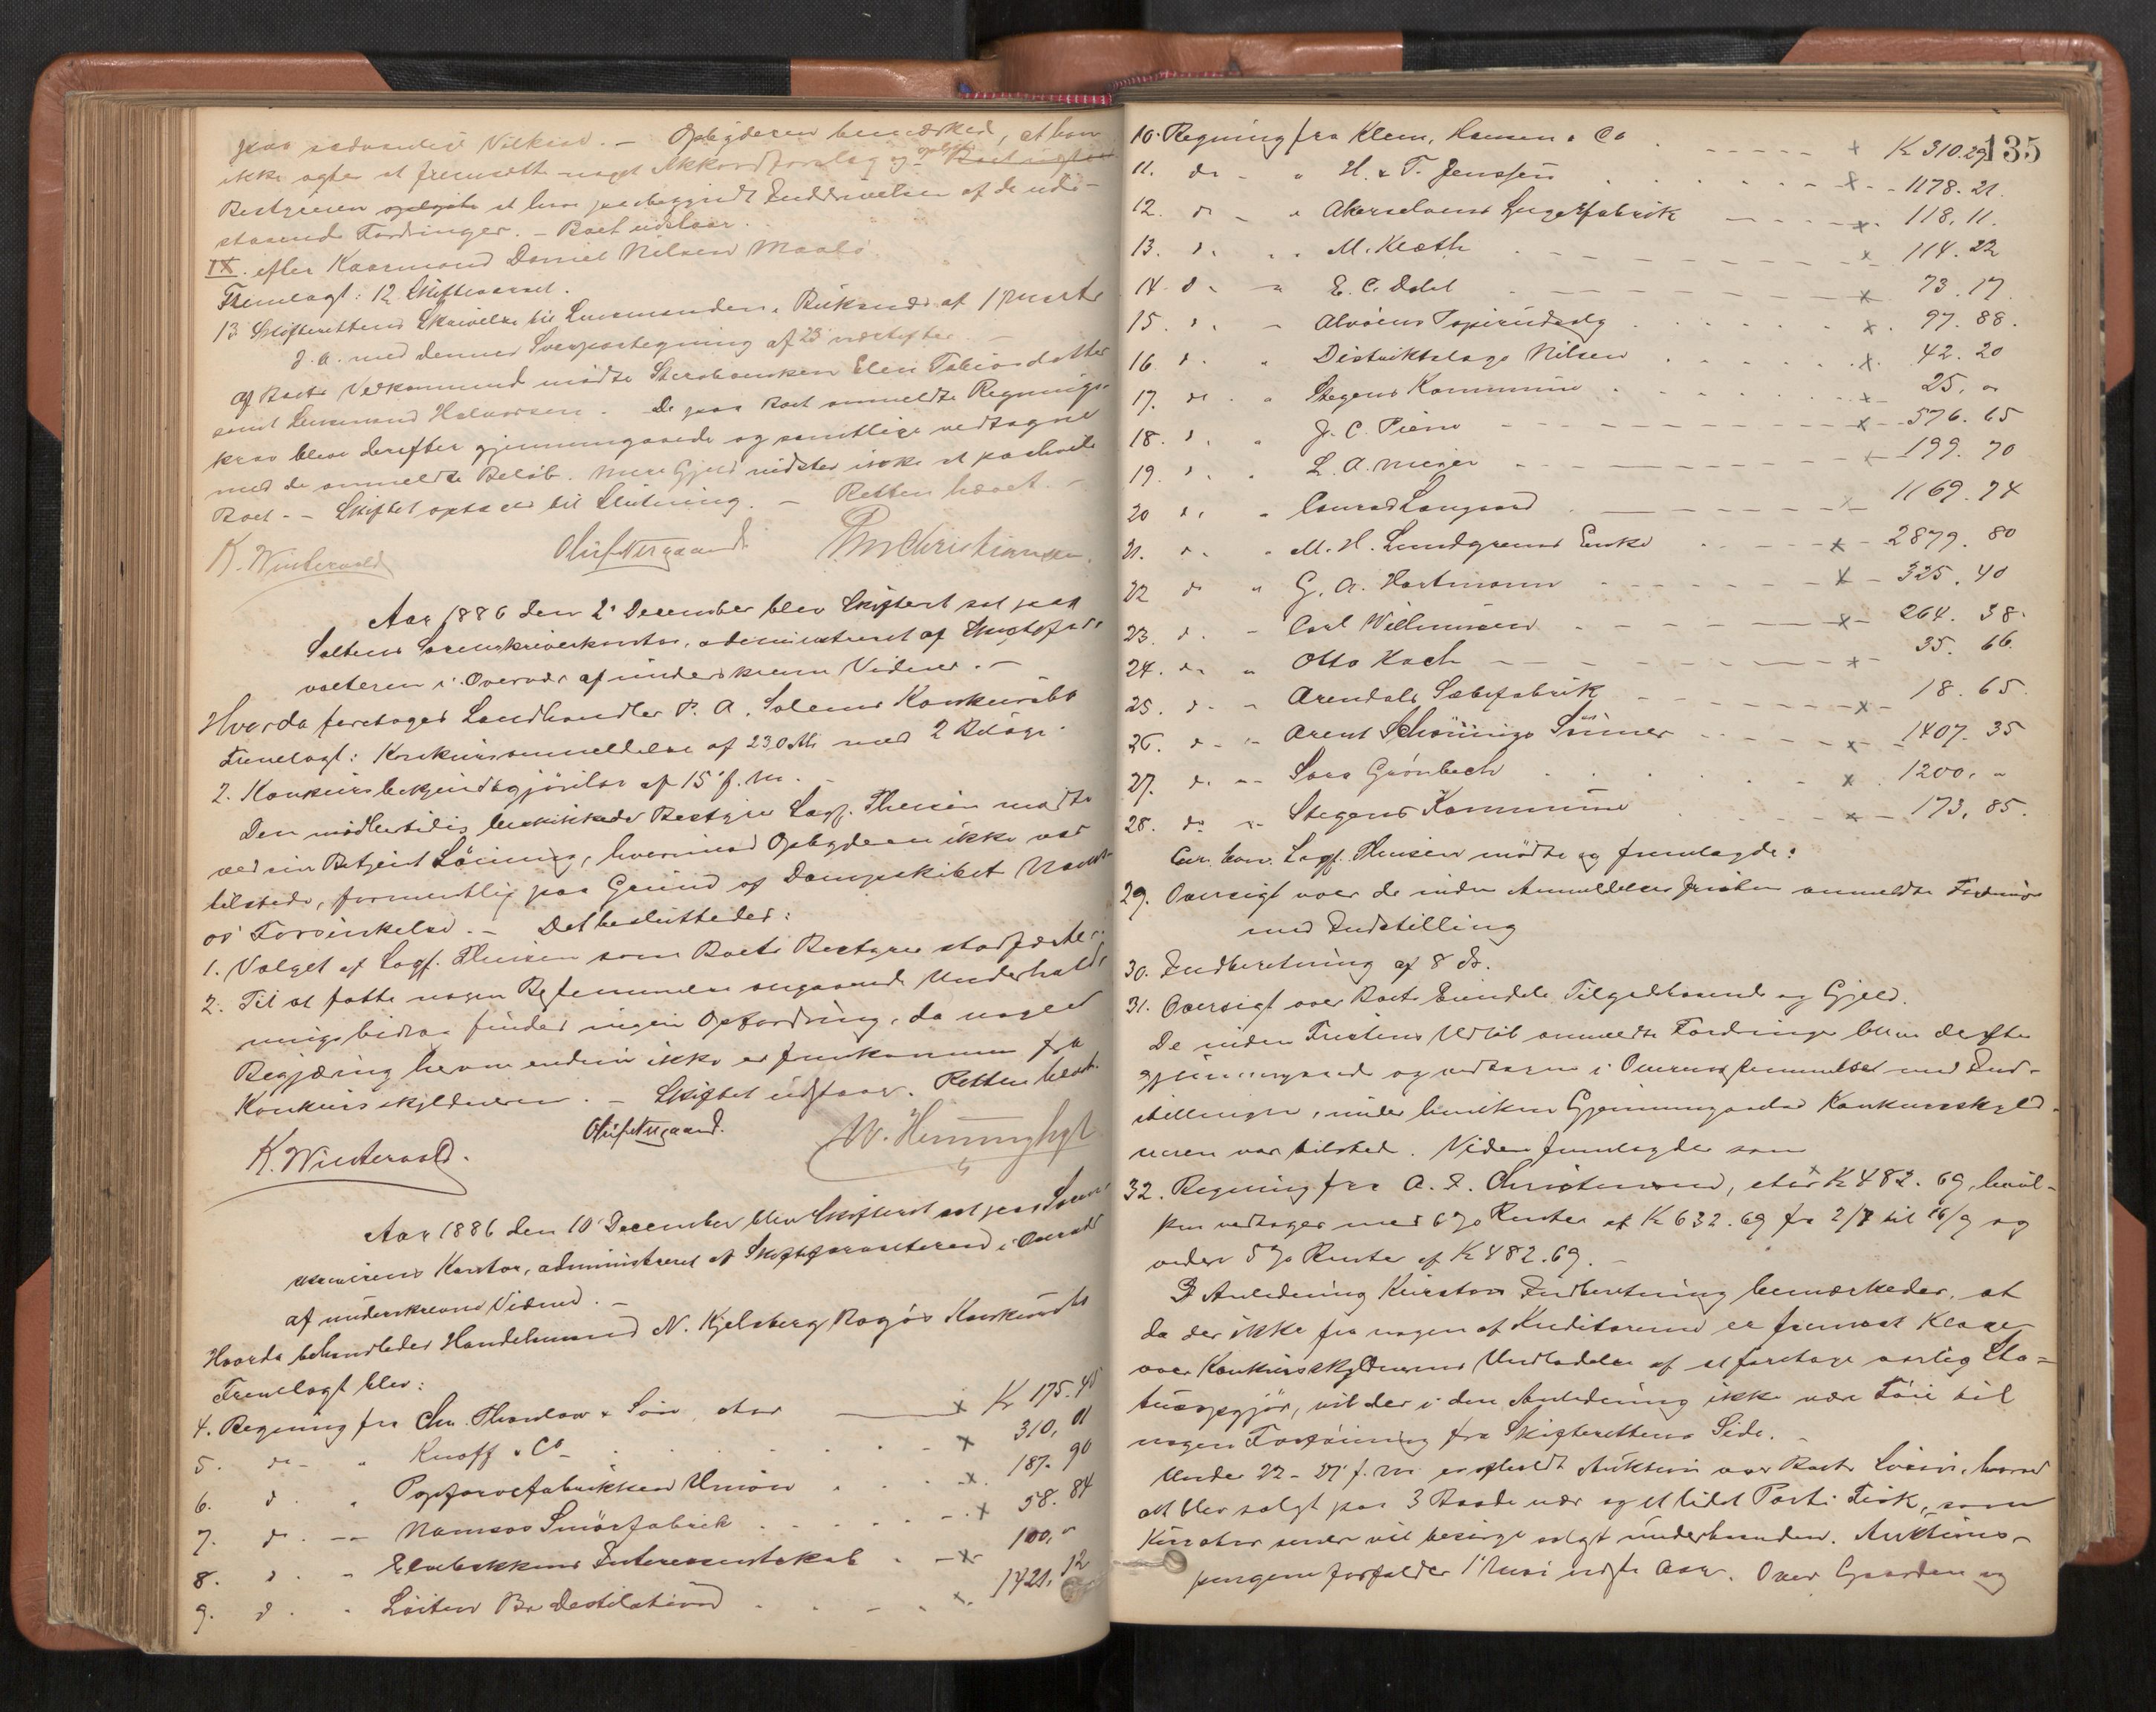 paa sædvanlige Vilkaar. – Opbyderen bemærked, at han
ikke agter at fremsætte noget Akkordforslag og
Bestyreren at have paabegyndt Inddrivelsen af de ude-
staaende Fordringer. – Boet udstaar.
IX. efter Kaarmand Daniel Nilsen Maalø.
Fremlagt: 12 Skiftevarsel.
13 Skifterettens Skrivelse til Lensmanden i af 1
d. a. med dennes Svarpaategning af 23 næstefter.
Af Boets Vedkommende mødte Sterbeenken Elen Tobiasdatter
samt Lensmand Halvorsen. De paa Boet anmeldte Regnings-
krav blev derefter gjennemgaaede og samtlige vedtagne
med de anmeldte Beløb. Mere Gjeld vidstes ikke at paahvile
Boet. – Skiftet optages til Slutning. – Retten hævet. –
K. Winterwold Oluf Nergaard Christiansen.
Aar 1886 den 2. December blev Skifteret sat paa
Saltens Sorenskriverkontor, administreret af Skiftefor-
valteren i Overvær af underskrevne Vidner. –
Hvorda foretoges Landhandler P. A. Solems Konkursbo
Fremlagt: Konkursanmeldelse af 23 Okt. med 2 Bilage.
2. Konkursbekjendtgjørelse af 15 f. M. –
Den midlertidig beskikkede Bestyrer Sagf. Thesen mødte
ved sin Betjent Löining, hvorimod Opbyderen ikke var
tilstede, formentlig paa Grund af Dampskibet
os' Forsinkelse. – Det besluttedes:
1. Valget af Sagf. Thesen som Boets Bestyrer stadfæstes.
2. Til at fatte nogen Bestemmelse angaaende Underhold-
ningsbidrag findes ingen Opfordring, da nogen
Begjæring herom endnu ikke er fremkommen fra
Konkursskyldneren. – Skiftet udstaar. Retten hævet.
K. Winterwold. Oluf Nergaard. W.
Aar 1886 den 10 December blev Skifteret sat paa Soren-
skriverens Kontor, administreret af Skifteforvalteren i Overvær
af underskrevne Vidner. –
Hvorda behandledes Handelsmand N. Kjelsberg Bogøs Konkursbo
Fremlagt blev:
4. Regning fra Chr. Thaulow & Søn, stor x Kr 175.45
5. do - " Knoff & Co x 310,01
6. d. " Papfabrikken Union x 187.90
7. do. " Namsos Smørfabrik x 58.84
8. d. " Elvebakkens Interessentskab x 100,"
9. d. " Løiten Br. Destilation x 1421.12
135
10. Regning fra Klem, Hansen & Co x Kr 310.29
11. do - " H. & T. Jenssen x 1178.21.
12. d - " Akerselvens x 118.11.
13. d. " M. Klæth x 114.22
14. d. " E. C. Dahl x 73.17
15. d. " Alvøens Papirudsalg x 97.88.
16. d. " Distriktslæge Nilsen x 42.20
17. do " Stegens Kommune x 25."
18. d. " J. C. Piene x 576.65
19. d. " L. A. Meyer x 199.70
20 d. " Conrad Langaard x 1169.74
21. d. " M. H. Lundgrens Enke x 2879.80
22 do " G. A. Hartmann x 325.40
23. d. " Carl Willumsen x 264.38.
24. do " Otto Koch x 35.66.
25. d. " Arendals Sæbefabrik x 18.65.
26. d. " Arent Schönings Sönner x 1407.35
27. d. " Sara Grønbech x 1200."
28. do " Stegens Kommune x 173,85.
Cur. bon. Sagf. Thesen mødte og fremlagde:
29. Oversigt over de inden Anmeldelsesfristen anmeldte Fordringer
med Indstilling
30. Indberetning af 8 ds.
31. Oversigt over Boets Eiendele Tilgodehavende og Gjeld.
De inden Fristens Udløb anmeldte Fordringer blev derefter
gjennemgaaede og vedtagne i Overensstemmelse med Ind-
stillingen, under hvilken Gjennemgaaelse Konkursskyld-
neren var tilstede. Videre fremlagdes som
32. Regning fra A. F. Christensen, stor Kr 482.69, hvil-
ken vedtages med 6 % Renter af Kr 632.69 fra 2/7 til 16/9 og
videre 5 % Rente af Kr 482.69. –
I Anledning Kurators Indberetning bemærkedes, at
da der ikke fra nogen af Kreditorerne er fremsat Klage
over Konkursskyldnerens Undladelse af at foretage aarlig Sta-
tusopgjør, vil der i den Anledning ikke være Føie til
nogen Forføining fra Skifterettens Side. –
Under 22 - 27 f. M. er afholdt Auktion over Boets Løsøre, hvorved
alt blev solgt paa 3 Baade nær og et lidet Parti Fisk, som
Kurator senere vil besørge solgt underhaanden. Auktions-
pengene forfalder 1 Mai næste Aar. Over Gaarden og